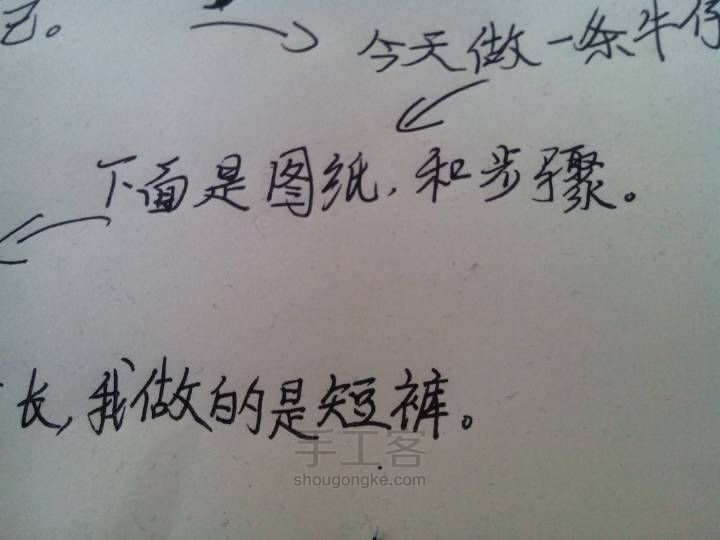 今天做一条牛仔
下面是图纸,和步骤。
长,我做的是短裤。
手工客
shougongke.com